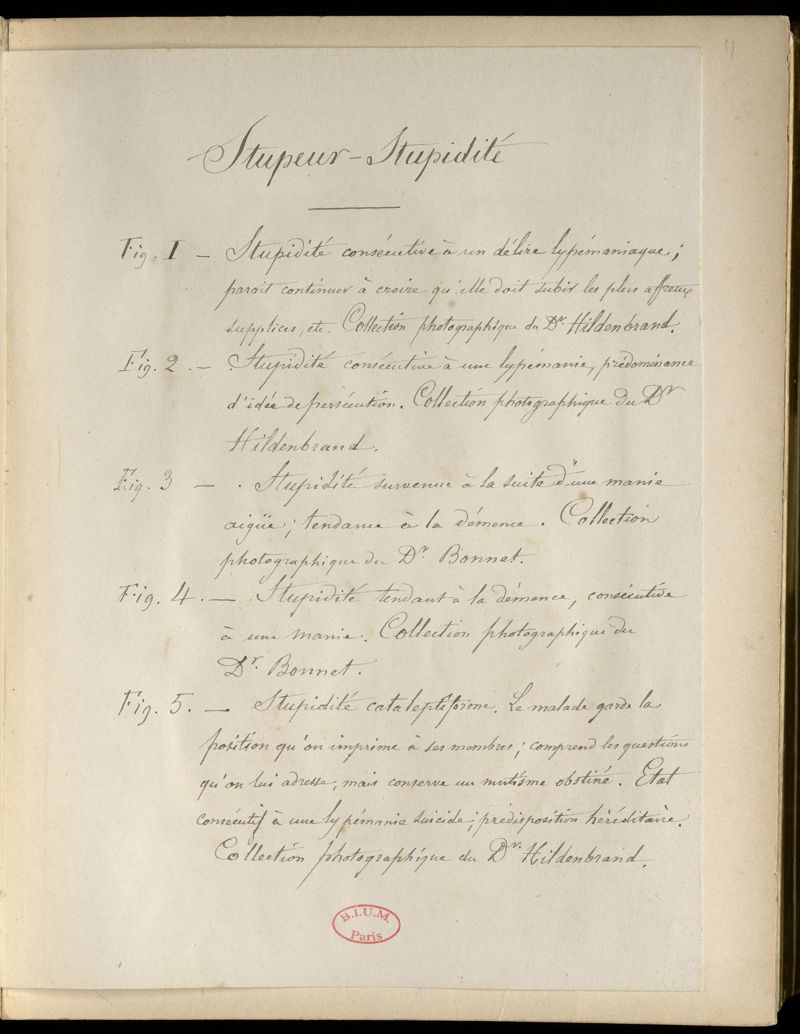 11
Stupeur - Stupidité
Fig. 1 - Stupidité consécutive à un délire lypémaniaque;
parait continuer à croire qu'elle doit subir les plus affreux
supplices, etc. Collection photographique du Dr Hildenbrand.
Fig. 2 . - . Stupidité consécutive à une lypémanie, prédominance
d'idée de persécution. Collection photographique du Dr
Hildenbrand.
Fig. 3 - . Stupidité survenue à la suite d'une manie
aigüe; tendance à la démence. Collection
photographique du Dr. Bonnet.
Fig. 4 . - . Stupidité tendant à la démence, consécutive
à une manie. Collection photographique du
Dr. Bonnet.
Fig. 5. - Stupidité cataleptiforme. Le malade garde la
position qu'on imprime à ses membres; comprend les questions
qu'on lui adresse, mais conserve un mutisme obstiné. Etat
consécutif à une lypémanie suicide; prédisposition héréditaire.
Collection photographique du Dr. Hildenbrand.
B.I.U.M.
Paris